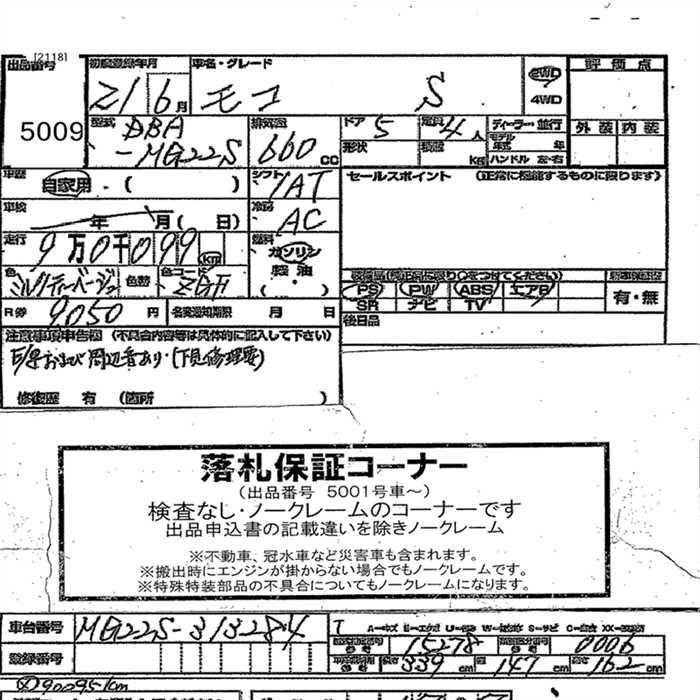 [2118]
出品番号
5009
初度登録年月
21 6月
車名・グレード
モコ S
2WD
4WD
評価点
外装 内装
型式
DBA
-MG22S
排気量
660 cc
ドア 5
形状
定員 4人
積載 kg
ディーラー・並行
モデル年式 年
ハンドル 左・右
車歴
自家用・( )
シフト
IAT
セールスポイント (正常に機能するものに限ります)
車検
年 月( 日)
冷房
AC
走行
9万0千099km
燃料
ガソリン
軽油
( ・ )
色
ミルクティーベージュ
色替
色コード
ZGF
PS PW ABS エアB
SR ナビ TV
有・無
後日品
R券 9050 円
名変通知期限 月 日
注意事項申告欄 (不具合内容等は具体的に記入して下さい)
修復歴 有 (箇所 )
落札保証コーナー
(出品番号 5001号車~)
検査なし・ノークレームのコーナーです
出品申込書の記載違いを除きノークレーム
※不動車、冠水車など災害車も含まれます。
※搬出時にエンジンが掛からない場合でもノークレームです。
※特殊特装部品の不具合についてもノークレームになります。
車台番号
MG22S-313284
登録番号
15278
0006
長さ 339 cm 幅 147 cm 高さ 162 cm
90095km